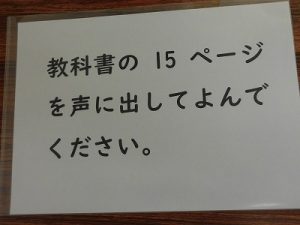 教科書の 15 ページ
を声に出してよんで
ください。